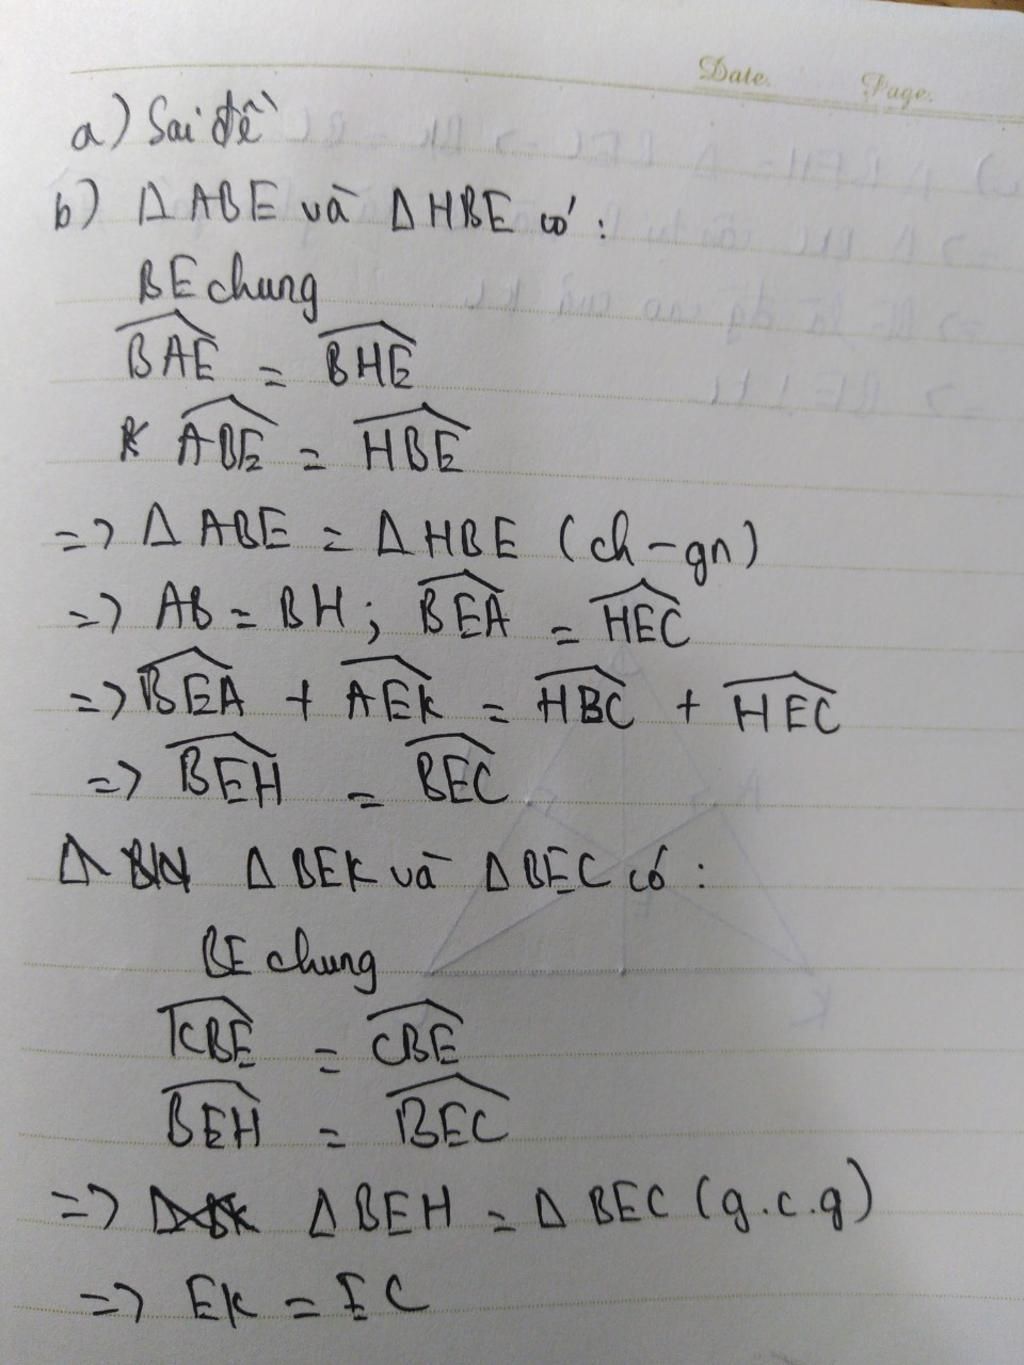 Date.
Page.
a) Sai đề
b) Δ ABE và Δ HBE có :
BE chung
BAE = BHE
ABE = HBE
=> Δ ABE = Δ HBE (ch - gn)
=> AB = BH ; BEA = HEC
=> BEA + AEK = HBC + HEC
=> BEH = BEC
Δ Δ BEK và Δ BEC có :
BE chung
KBE = CBE
BEH = BEC
=> Δ BEH = Δ BEC (g.c.g)
=> EK = EC